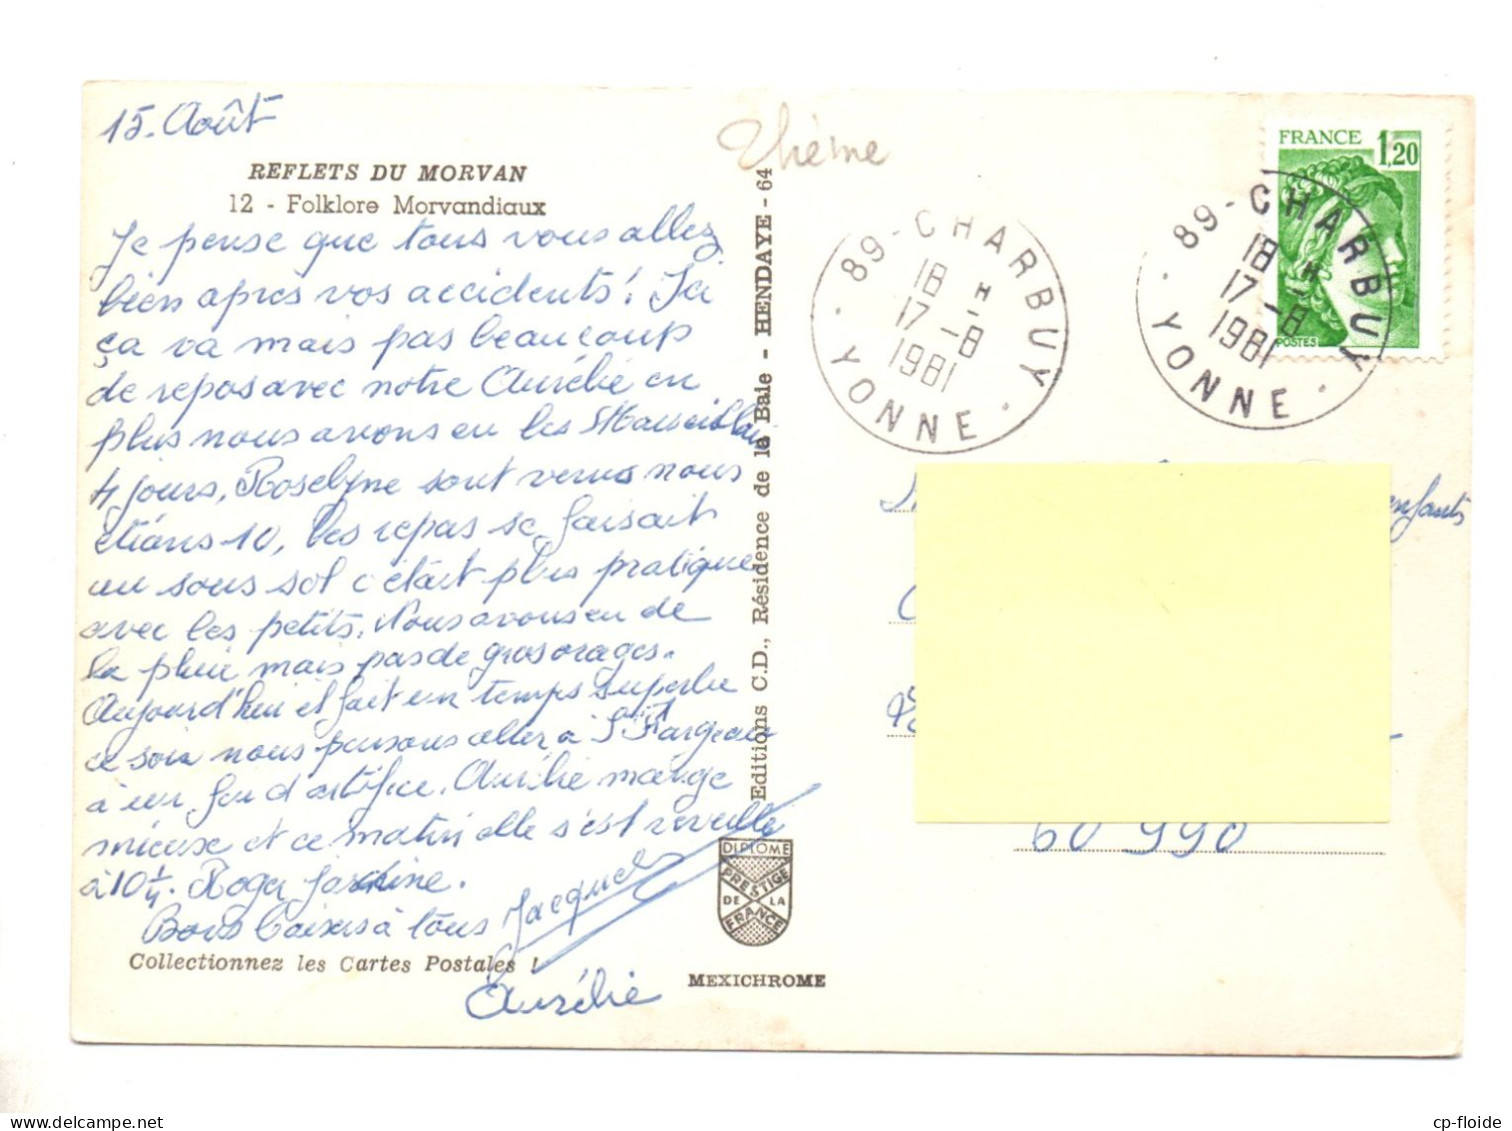 15. Août
REFLETS DU MORVAN
12 - Folklore Morvandiaux
Je pense que tous vous allez
bien apres vos accidents! Ici
ça va mais pas beaucoup
de repos avec notre Aurélie en
plus nous avons eu les Marseillais
4 jours, Roselyne sont venus nous
étions 10, les repas se faisait
au sous sol c'était plus pratique
avec les petits. Nous avons eu de
la pluie mais pas de gros orages.
Aujourd'hui il fait un temps superbe
ce soir nous pensons aller à St Fargeau
à un feu d'artifice. Aurélie mange
mieux et ce matin elle s'est réveillée
à 10 1/4. Roger
Bons baisers à tous Jacques
Aurélie
Collectionnez les Cartes Postales !
Thème
Editions C.D., Résidence de la Baie - HENDAYE - 64
DIPLOME
PRESTIGE
DE LA
FRANCE
MEXICHROME
89 - CHARBUY
18 H
17 - 8
1981
YONNE
FRANCE 1,20
POSTES
89 - CHARBUY
18 H
17 - 8
1981
YONNE
enfants
60 990